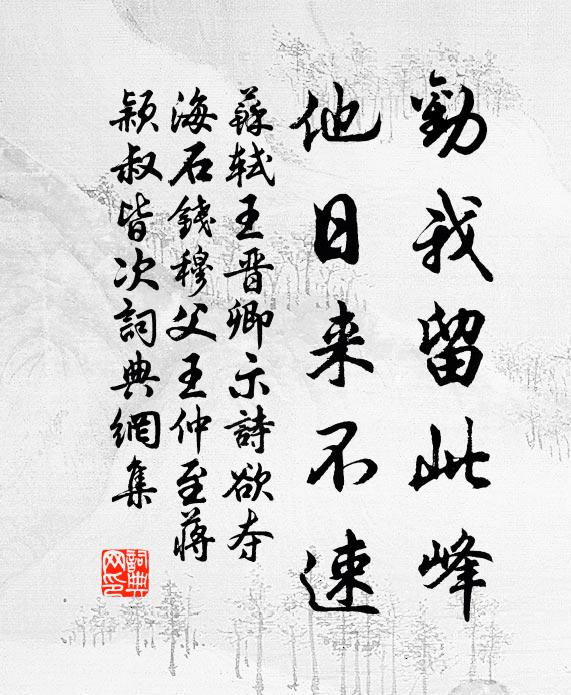 勸我留此峰
他日来不速
蘇軾王晋卿示詩欲夺
海石錢穆父王仲至蔣
颖叔皆次詞典網集
詞典网印